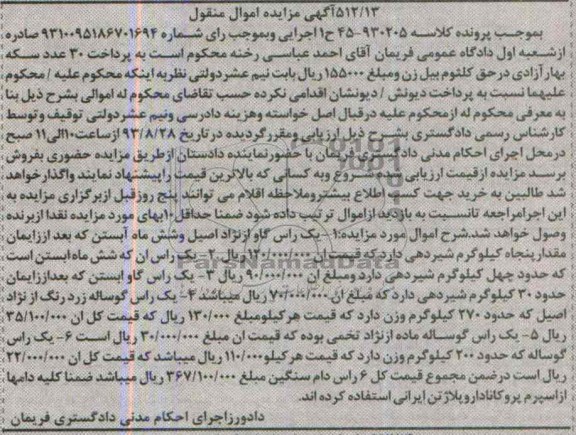 ۵۱۲/۱۳آگهی مزایده اموال منقول
بموجب پرونده کلاسه ۹۳۰۲۰۵-۴۵ ح۱اجرایی وبموجب رای شماره ۹۳۱۰۰۹۵۱۸۶۷۰۱۶۹۴ صادره
ازشعبه اول دادگاه عمومی فریمان آقای احمد عباسی رخنه محکوم است به پرداخت ۳۰ عدد سکه
بهارآزادی درحق کلثوم بیل زن ومبلغ ۱۵۵۰۰۰ ریال بابت نیم عشردولتی نظربه اینکه محکوم علیه /محکوم
علیهما نسبت به پرداخت دیونش / دیونشان اقدامی نکرده حسب تقاضای محکوم له اموالی بشرح ذیل بنا
به معرفی محکوم له ازمحکوم علیه درقبال اصل خواسته وهزینه دادرسی ونیم عشردولتی توقیف وتوسط
کارشناس رسمی دادگستری بشرح ذیل ارزیابی ومقررگردیده درتاریخ ۹۳/۸/۲۸ ازساعت۱۰الی۱۱ صبح
درمحل اجرای احکام مدنی دادگستری فریمان با حضورنماینده دادستان ازطریق مزایده حضوری بفروش
برسد مزایده ازقیمت ارزیابی شده شروع وبه کسانی که بالاترین قیمت راپیشنهاد نمایند واگذارخواهد
شد طالبین به خرید جهت کسب اطلاع بیشتروملاحظه اقلام می توانند پنج روزقبل ازبرگزاری مزایده به
این اجرامراجعه تانسبت به بازدید ازاموال ترتیب داده شود ضمنا حداقل۱۰بهای مورد مزایده نقدا ازبرنده
وصول خواهد شد.شرح اموال مورد مزایده:۱-یک راس گاو ازنژاد اصیل وشش ماه آبستن که بعد اززایمان
مقدارپنجاه کیلوگرم شیردهی دارد که قیمت ان ۱۲۰/۰۰۰/۰۰۰ ریال ۲- یک راس ان که شش ماه ابستن است
که حدود چهل کیلوگرم شیردهی دارد ومبلغ ان ۹۰/۰۰۰/۰۰۰ ریال ۳- یک راس گاو ابستن که بعداززایمان
حدود ۳۰ کیلوگرم شیردهی دارد که مبلغ ان ۷۰/۰۰۰/۰۰۰ ریال میباشد ۴- یک راس گوساله زرد رنگ از نژاد
اصیل که حدود ۲۷۰ کیلوگرم وزن دارد که قیمت هرکیلومبلغ ۱۳۰/۰۰۰ ریال که قیمت کل ان ۳۵/۱۰۰/۰۰۰
ریال ۵- یک راس گوساله ماده ازنژاد تخمی بوده که قیمت ان مبلغ ۳۰/۰۰۰/۰۰۰ ریال است ۶- یک راس
گوساله که حدود ۲۰۰ کیلوگرم وزن دارد که قیمت هرکیلو۱۱۰/۰۰۰ ریال میباشد که قیمت کل ان ۲۲/۰۰۰/۰۰۰
ریال است درضمن مجموع قیمت کل ۶ راس دام سنگین مبلغ ۳۶۷/۱۰۰/۰۰۰ ریال میباشد ضمنا کلیه دامها
ازاسپرم پروکانادارویلاژتن ایرانی استفاده کرده اند.
دادورزاجرای احکام مدنی دادگستری فریمان
ParsNamadData